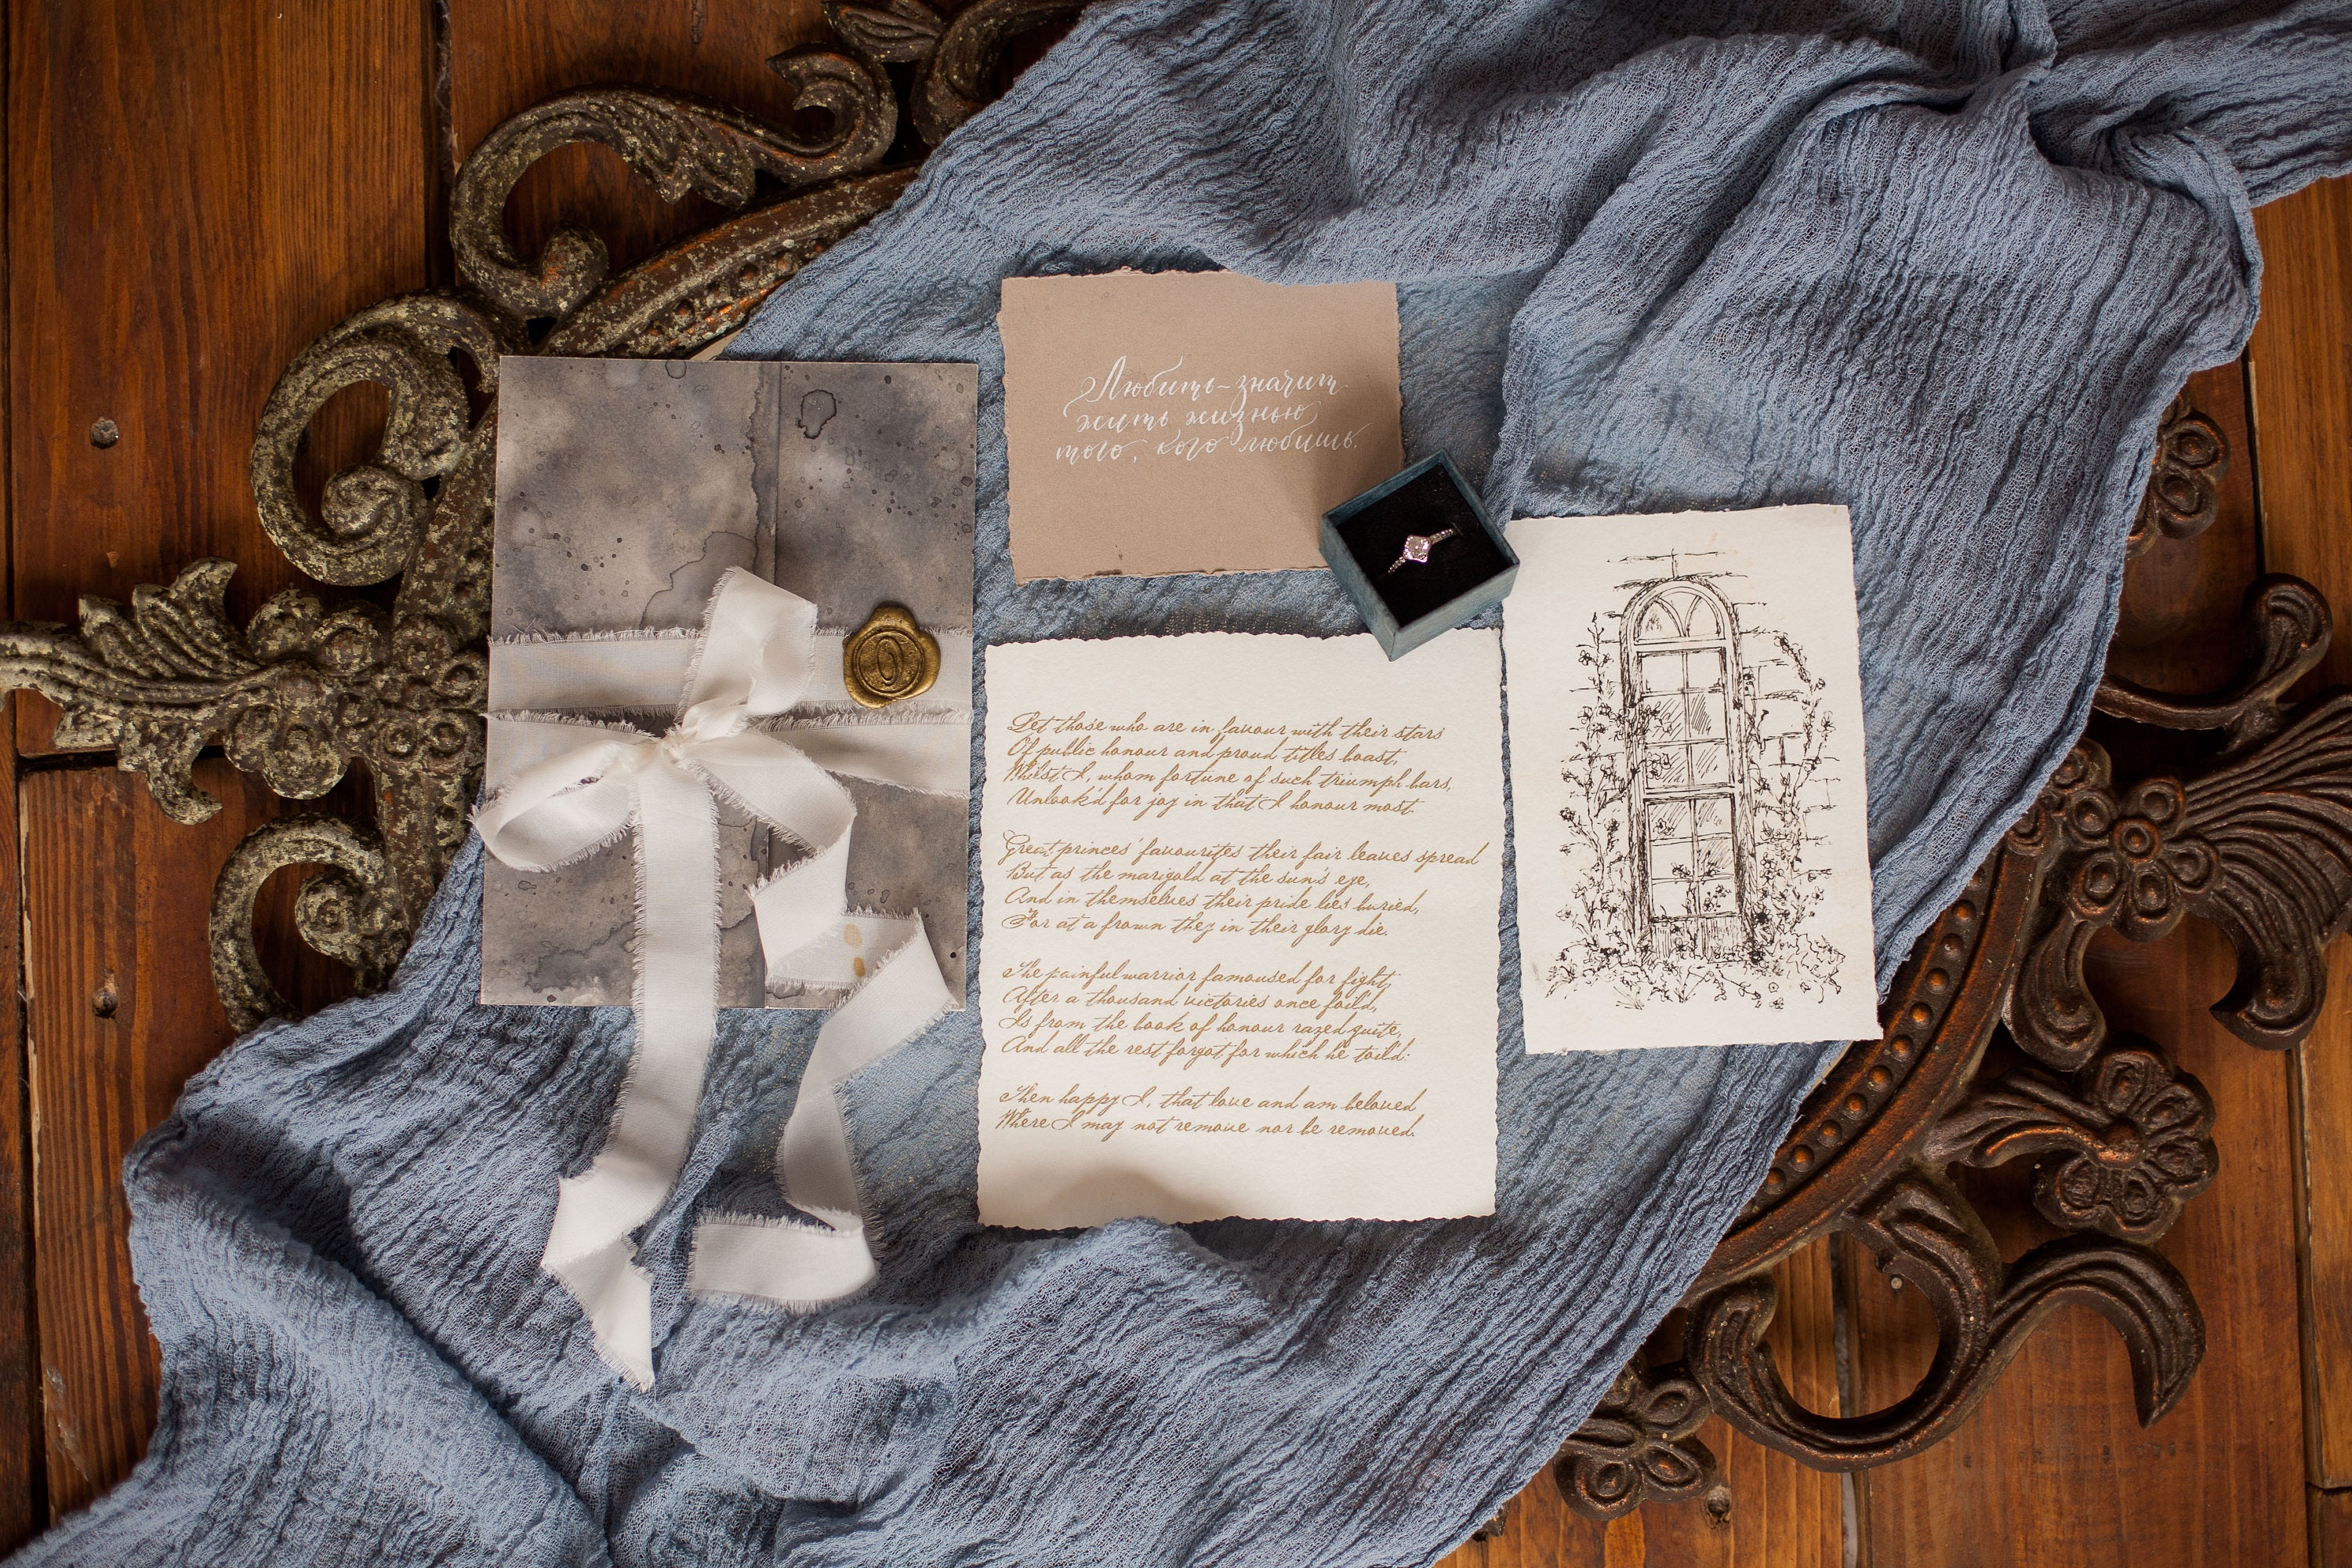 Любить-значит
жить жизнью
того, кого любишь.
Let those who are in favour with their stars
Of public honour and proud titles boast,
Whilst I, whom fortune of such triumph bars,
Unlook'd for joy in that I honour most.
Great princes' favourites their fair leaves spread
But as the marigold at the sun's eye,
And in themselves their pride lies buried,
For at a frown they in their glory die.
The painful warrior famoused for fight,
After a thousand victories once foild,
Is from the book of honour razed quite,
And all the rest forgot for which he toild:
Then happy I, that love and am beloved
Where I may not remove nor be removed.